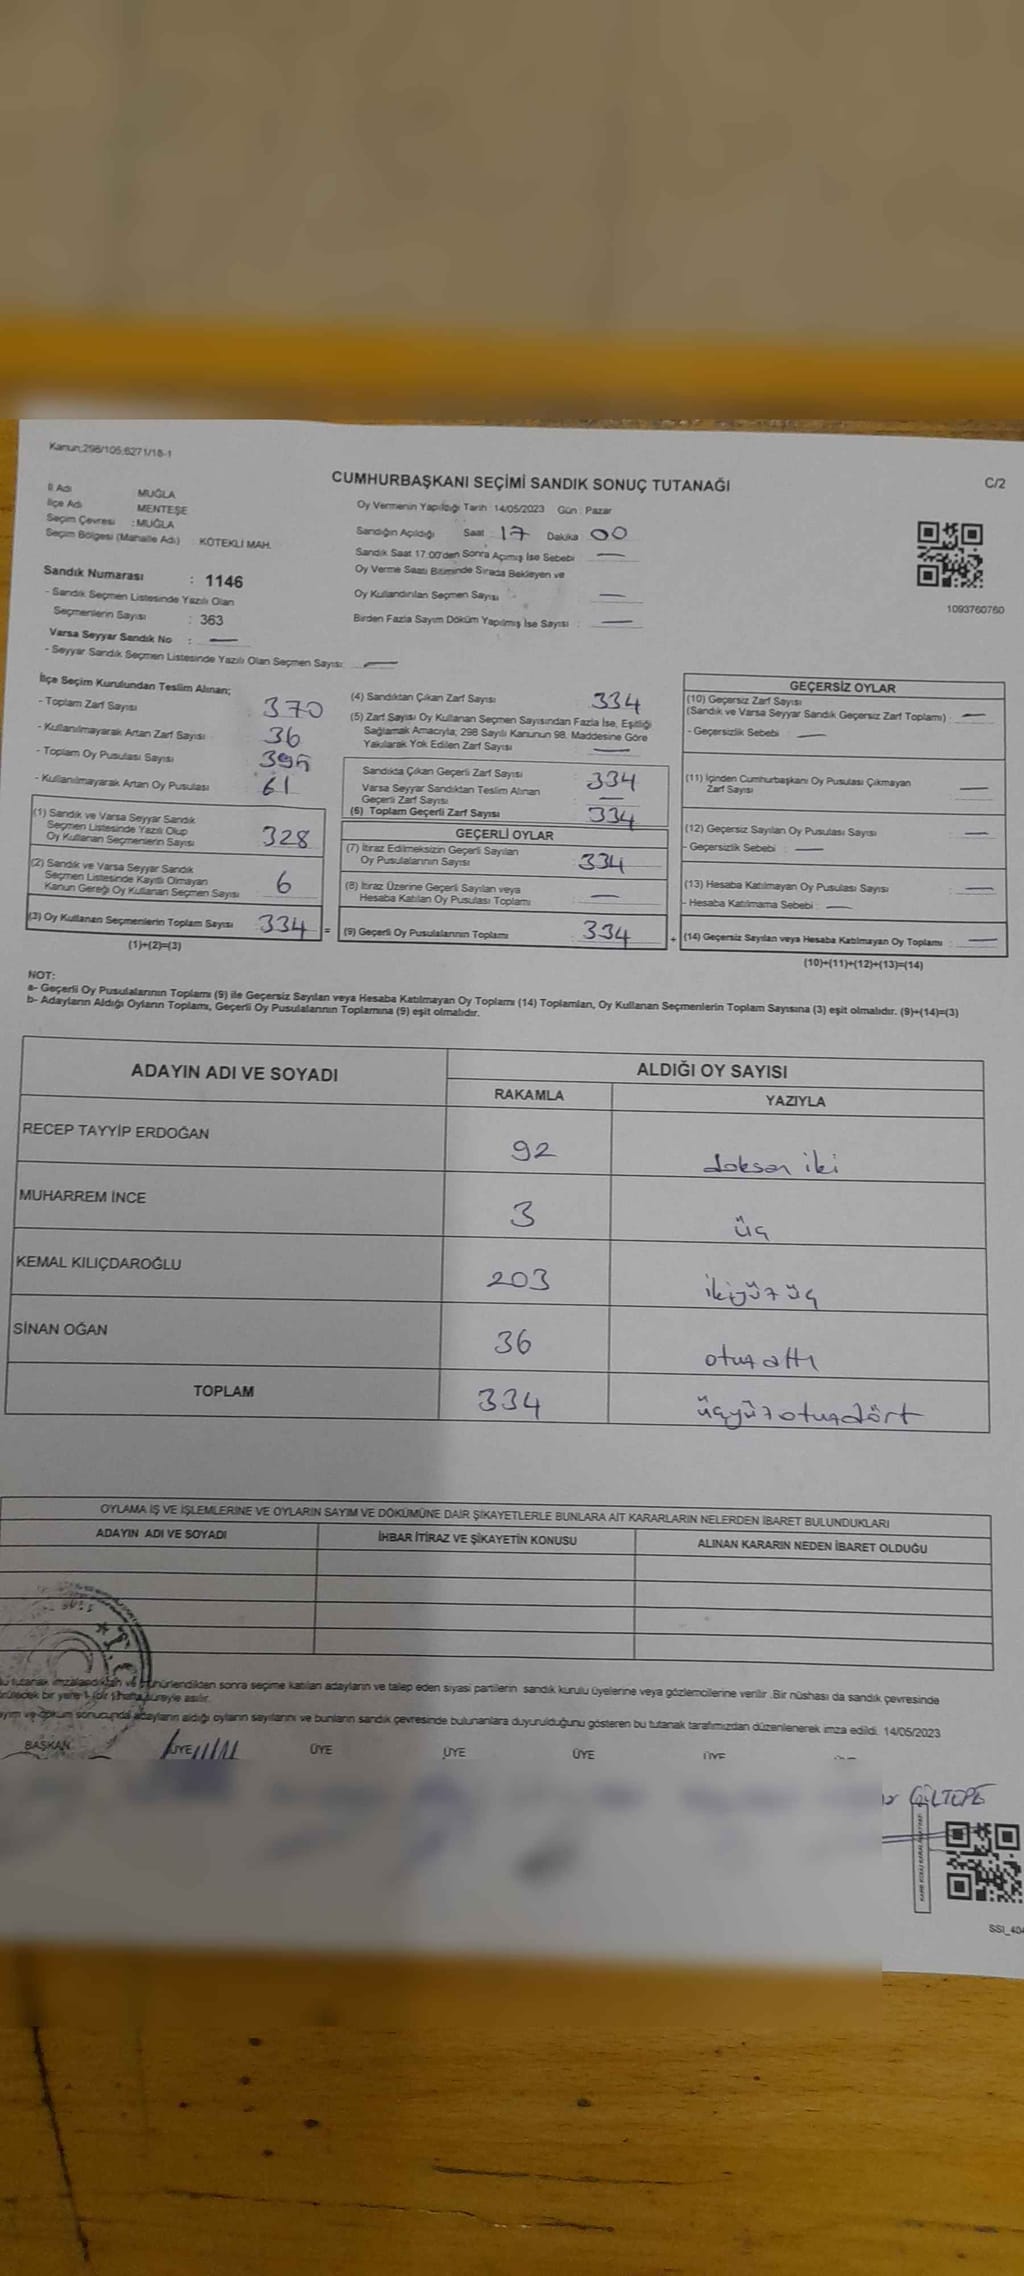 Kanun;298/105;6271/18-1
CUMHURBAŞKANI SEÇİMİ SANDIK SONUÇ TUTANAĞI
C/2
İl Adı MUĞLA
İlçe Adı MENTEŞE
Seçim Çevresi : MUĞLA
Seçim Bölgesi (Mahalle Adı) KÖTEKLİ MAH.
Oy Vermenin Yapıldığı Tarih : 14/05/2023 Gün : Pazar
Sandığın Açıldığı Saat : 17 Dakika 00
Sandık Saat 17:00'den Sonra Açmış İse Sebebi —
Oy Verme Saati Bitiminde Sırada Bekleyen ve
Oy Kullandırılan Seçmen Sayısı : —
Birden Fazla Sayım Döküm Yapılmış İse Sayısı : —
1093760760
Sandık Numarası : 1146
- Sandık Seçmen Listesinde Yazılı Olan
Seçmenlerin Sayısı : 363
Varsa Seyyar Sandık No : —
- Seyyar Sandık Seçmen Listesinde Yazılı Olan Seçmen Sayısı: —
İlçe Seçim Kurulundan Teslim Alınan;
- Toplam Zarf Sayısı 370
- Kullanılmayarak Artan Zarf Sayısı 36
- Toplam Oy Pusulası Sayısı
- Kullanılmayarak Artan Oy Pusulası 61
(1) Sandık ve Varsa Seyyar Sandık
Seçmen Listesinde Yazılı Olup
Oy Kullanan Seçmenlerin Sayısı 328
(2) Sandık ve Varsa Seyyar Sandık
Seçmen Listesinde Kayıtlı Olmayan
Kanun Gereği Oy Kullanan Seçmen Sayısı 6
(3) Oy Kullanan Seçmenlerin Toplam Sayısı 334 =
(1)+(2)=(3)
(4) Sandıktan Çıkan Zarf Sayısı 334
(5) Zarf Sayısı Oy Kullanan Seçmen Sayısından Fazla İse, Eşitliği
Sağlamak Amacıyla; 298 Sayılı Kanunun 98. Maddesine Göre
Yakılarak Yok Edilen Zarf Sayısı —
Sandıkta Çıkan Geçerli Zarf Sayısı 334
Varsa Seyyar Sandıktan Teslim Alınan
Geçerli Zarf Sayısı —
(6) Toplam Geçerli Zarf Sayısı 334
GEÇERLİ OYLAR
(7) İtiraz Edilmeksizin Geçerli Sayılan
Oy Pusulalarının Sayısı 334
(8) İtiraz Üzerine Geçerli Sayılan veya
Hesaba Katılan Oy Pusulası Toplamı —
(9) Geçerli Oy Pusulalarının Toplamı 334 +
GEÇERSİZ OYLAR
(10) Geçersiz Zarf Sayısı
(Sandık ve Varsa Seyyar Sandık Geçersiz Zarf Toplamı) : —
- Geçersizlik Sebebi : —
(11) İçinden Cumhurbaşkanı Oy Pusulası Çıkmayan
Zarf Sayısı —
(12) Geçersiz Sayılan Oy Pusulası Sayısı : —
- Geçersizlik Sebebi : —
(13) Hesaba Katılmayan Oy Pusulası Sayısı : —
- Hesaba Katılmama Sebebi : —
(14) Geçersiz Sayılan veya Hesaba Katılmayan Oy Toplamı : —
(10)+(11)+(12)+(13)=(14)
NOT:
a- Geçerli Oy Pusulalarının Toplamı (9) ile Geçersiz Sayılan veya Hesaba Katılmayan Oy Toplamı (14) Toplamları, Oy Kullanan Seçmenlerin Toplam Sayısına (3) eşit olmalıdır. (9)+(14)=(3)
b- Adayların Aldığı Oyların Toplamı, Geçerli Oy Pusulalarının Toplamına (9) eşit olmalıdır.
ADAYIN ADI VE SOYADI ALDIĞI OY SAYISI
RAKAMLA YAZIYLA
RECEP TAYYİP ERDOĞAN 92 doksan iki
MUHARREM İNCE 3 üç
KEMAL KILIÇDAROĞLU 203 ikiyüz üç
SİNAN OĞAN 36 otuz altı
TOPLAM 334 üçyüzotuzdört
OYLAMA İŞ VE İŞLEMLERİNE VE OYLARIN SAYIM VE DÖKÜMÜNE DAİR ŞİKAYETLERLE BUNLARA AİT KARARLARIN NELERDEN İBARET BULUNDUKLARI
ADAYIN ADI VE SOYADI İHBAR İTİRAZ VE ŞİKAYETİN KONUSU ALINAN KARARIN NEDEN İBARET OLDUĞU
T.C
tutanak imzalandıktan ve mühürlendikten sonra seçime katılan adayların ve talep eden siyasi partilerin sandık kurulu üyelerine veya gözlemcilerine verilir .Bir nüshası da sandık çevresinde
bir yere 1 (bir) hafta süreyle asılır.
ve döküm sonucunda adayların aldığı oyların sayılarını ve bunların sandık çevresinde bulunanlara duyurulduğunu gösteren bu tutanak tarafımızdan düzenlenerek imza edildi. 14/05/2023
BAŞKAN ÜYE ÜYE ÜYE ÜYE ÜYE
GÜLTEPE